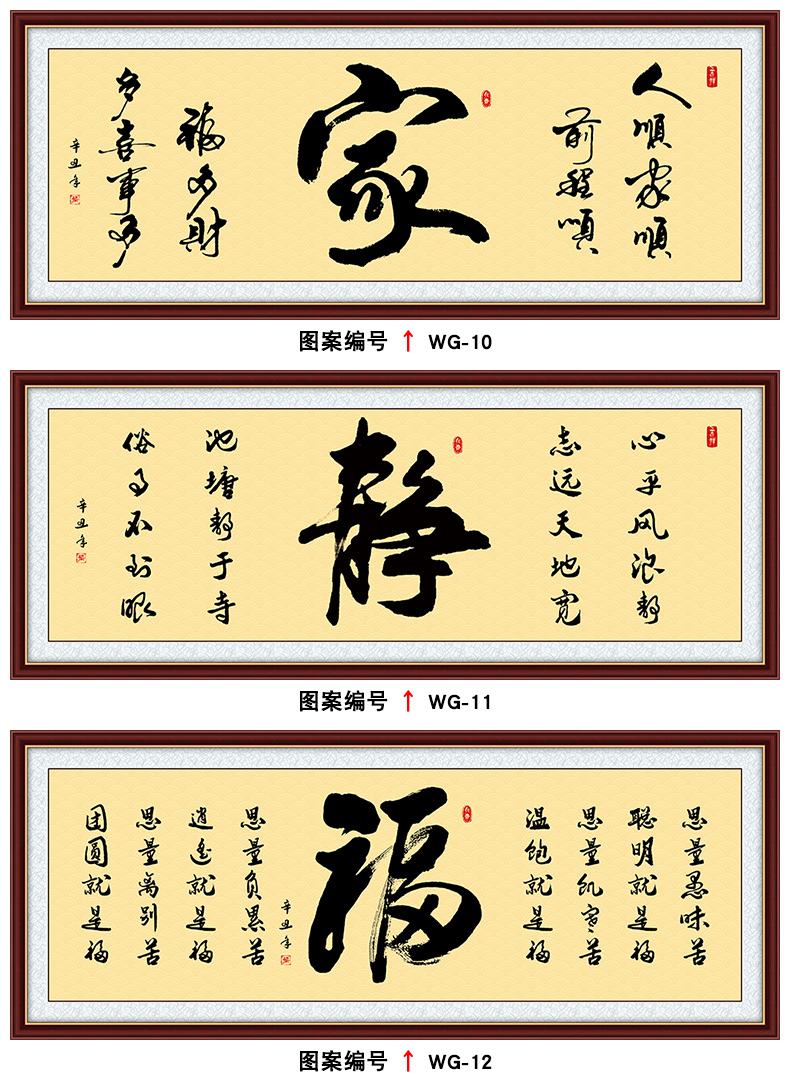 人順家順
前程順
家
福多財
多喜事多
辛丑年
图案编号 ↑ WG-10
心平风浪静
志远天地宽
静
池塘静于寺
俗事不到眼
辛丑年
图案编号 ↑ WG-11
思量愚昧苦
聪明就是福
思量饥寒苦
温饱就是福
福
辛丑年
思量负累苦
逍遥就是福
思量离别苦
团圆就是福
图案编号 ↑ WG-12